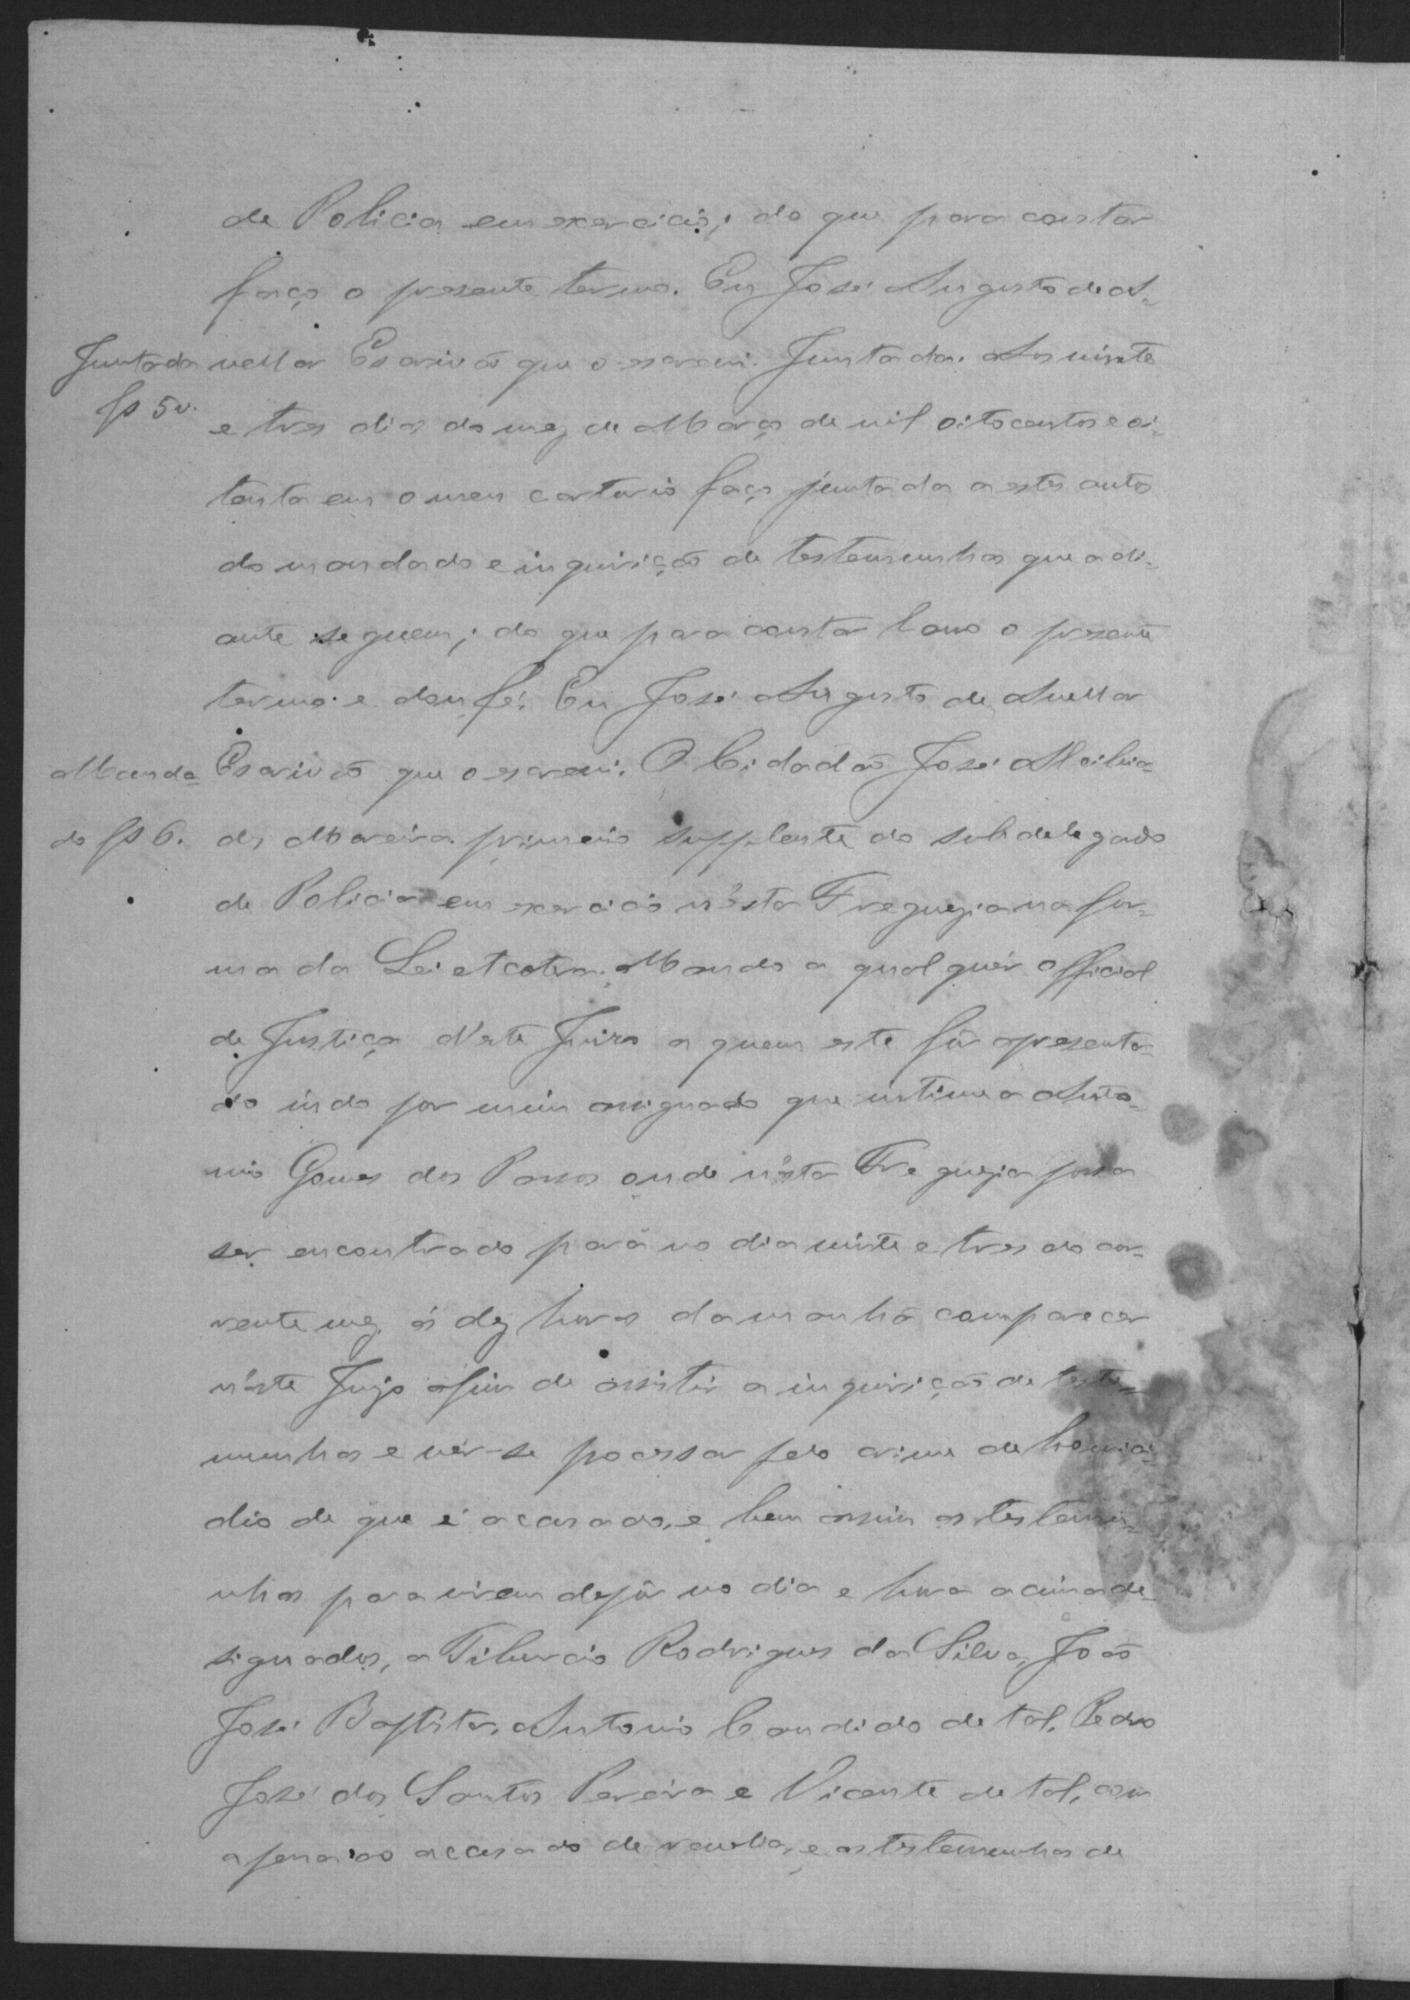 de Policia em exercicio; do que para constar
faço o presente termo. Eu José Augusto de A-
Juntada
fs 5v.
vellar Escrivão que o escrevi. Juntada. Aos vinte
e tres dias do mez de Março de mil oitocentos e oi-
tenta em o meu cartorio faço juntada a estes autos
do mandado e inquirição de testemunhas que adi-
ante seguem; do que para constar lavro o presente
termo e dou fé. Eu José Augusto de Avellar
Manda-
do fs 6.
Escrivão que o escrevi. O Cidadão José Alcibia-
des Moreira primeiro supplente do subdelegado
de Policia em exercicio n'esta Freguezia na for-
ma da Lei etcetra. Mando a qualquér official
de Justiça d'este Juizo a quem este fôr apresenta-
do indo por mim assignado que intime a Anto-
nio Gomes dos Passos onde n'esta Freguezia possa
ser encontrado para no dia vinte e tres do cor-
rente mez ás dez horas da manhã comparecer
n'este Juizo afim de assistir a inquirição de teste-
munhas e vêr-se processar pelo crime de homici-
dio de que é accusado, e bem assim as testemu-
nhas para virem depôr no dia e hora acima de-
signados, a Tiburcio Rodrigues da Silva, João
José Baptista, Antonio Candido de tal, Pedro
José dos Santos Pereira e Vicente de tal, com
a pena ao accusado de revelia, e as testemunhas de